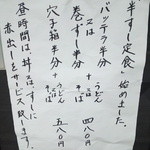 「半すし定食」始めました。
バッテラ半分
又は
巻ずし半分
+うどん
又は
そば
四八〇円
穴子箱半分
+うどん
又は
そば
五八〇円
昼時間は、丼又はすしに
煮出しをサービス致します。